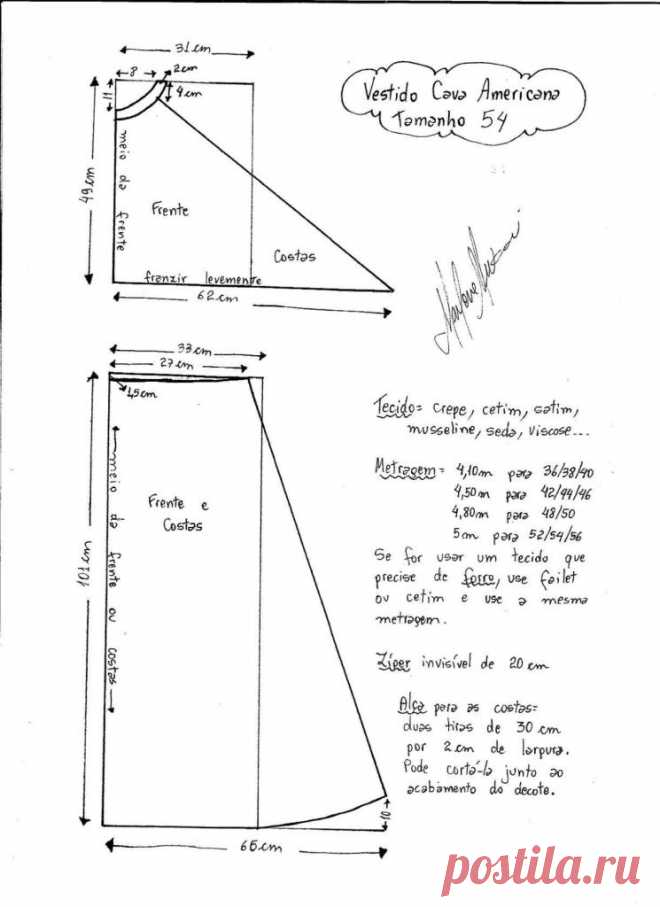 31cm
8
2cm
4cm
11
49cm
meio da frente
Frente
Costas
franzir levemente
62cm
Vestido Cava Americana
Tamanho 54
33cm
27cm
1,5cm
101cm
meio da frente ou costas
Frente e
Costas
10
65cm
Tecido= crepe, cetim, satim,
musseline, seda, viscose...
Metragem= 4,10m para 36/38/40
4,50m para 42/44/46
4,80m para 48/50
5m para 52/54/56
Se for usar um tecido que
precise de forro, use failet
ou cetim e use a mesma
metragem.
Zíper invisível de 20cm
Alça para as costas=
duas tiras de 30cm
por 2cm de largura.
Pode cortá-la junto ao
acabamento do decote.
postila.ru